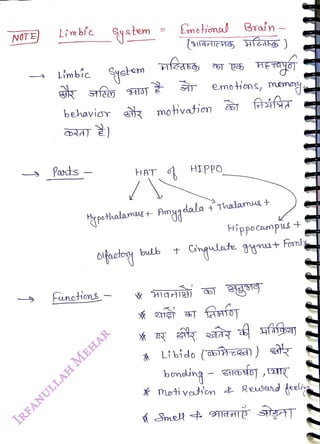 NOTE Limbic System = Emotional Brain -
(भावनात्मक मस्तिष्क)
→ Limbic System मस्तिष्क का एक महत्वपूर्ण
और जटिल भाग है जो emotions, memory,
behavior और motivation को नियंत्रित
करता है।
→ Parts - HAT of HIPPO
Hypothalamus + Amygdala + Thalamus +
Hippocampus +
Olfactory bulb + Cingulate gyrus + Fornix
→ Functions - * भावनाओं का अनुभव
* यादों का निर्माण
* डर और खतरे की प्रतिक्रिया
* Libido (कामेच्छा) और
bonding - आकर्षण, प्यार
* Motivation & Reward feeling
* Smell को भावनाएँ जोड़ना
IRFANULLAH MEHAR